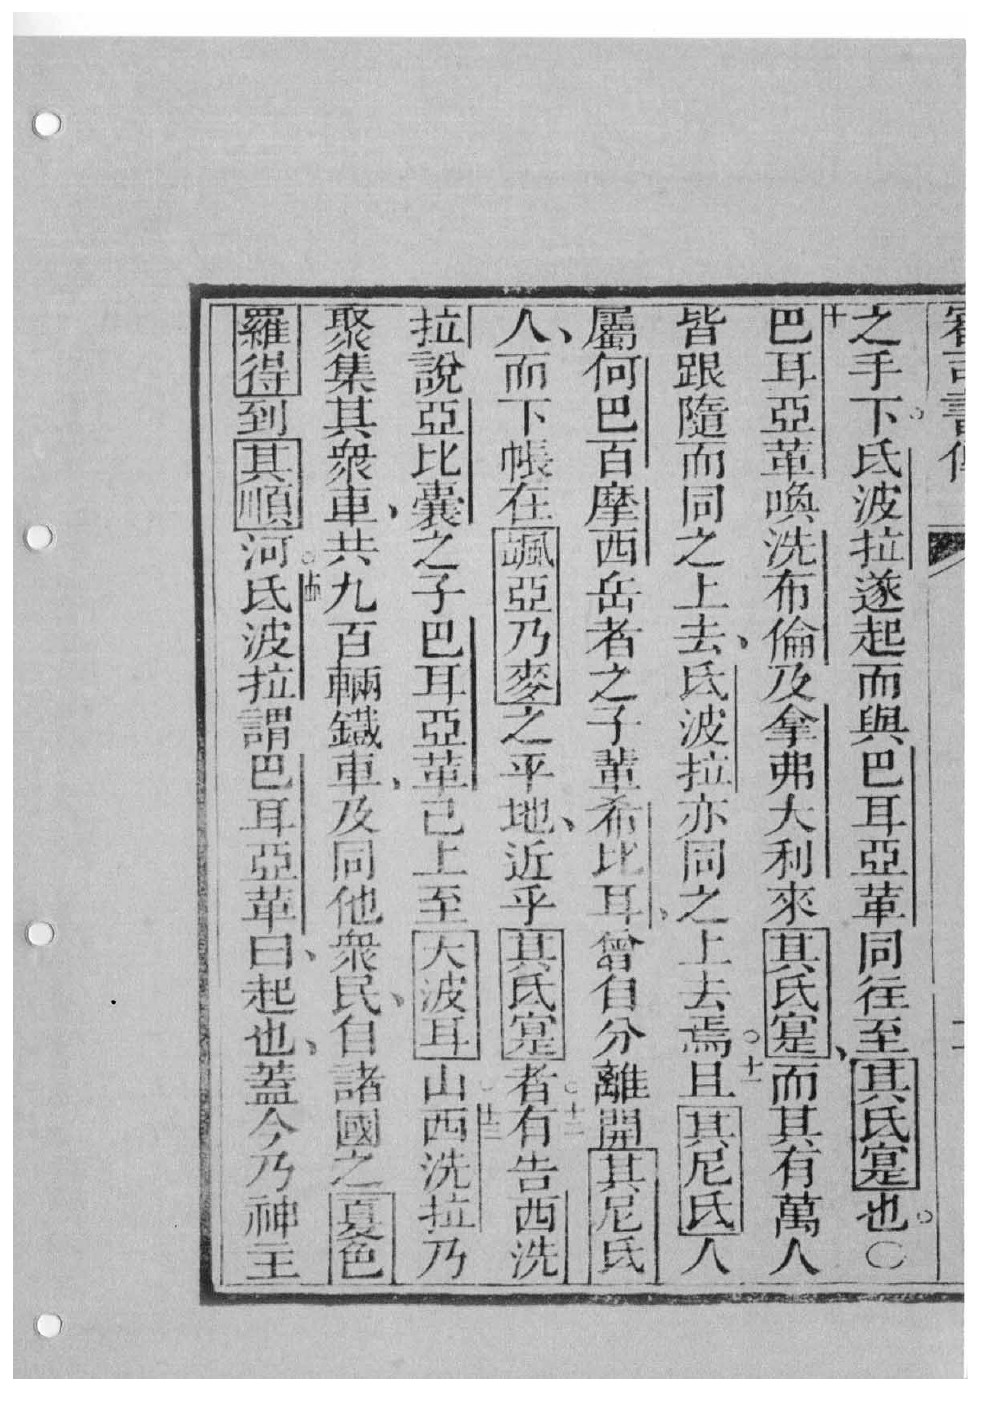 審司書傳
之手下氐波拉遂起而與巴耳亞革同往至其氐寔也〇
十巴耳亞革喚洗布倫及拿弗大利來其氐寔而其有萬人
皆跟隨而同之上去氐波拉亦同之上去焉十一且其尼氐人
屬何巴百摩西岳者之子輩希比耳曾自分離開其尼氐
人而下帳在諷亞乃麥之平地近乎其氐寔者十二有告西洗
拉說亞比囊之子巴耳亞革已上至大波耳山十三西洗拉乃
聚集其衆車共九百輛鐵車及同他衆民自諸國之夏色
羅得到其順河十四氐波拉謂巴耳亞革曰起也蓋今乃神主